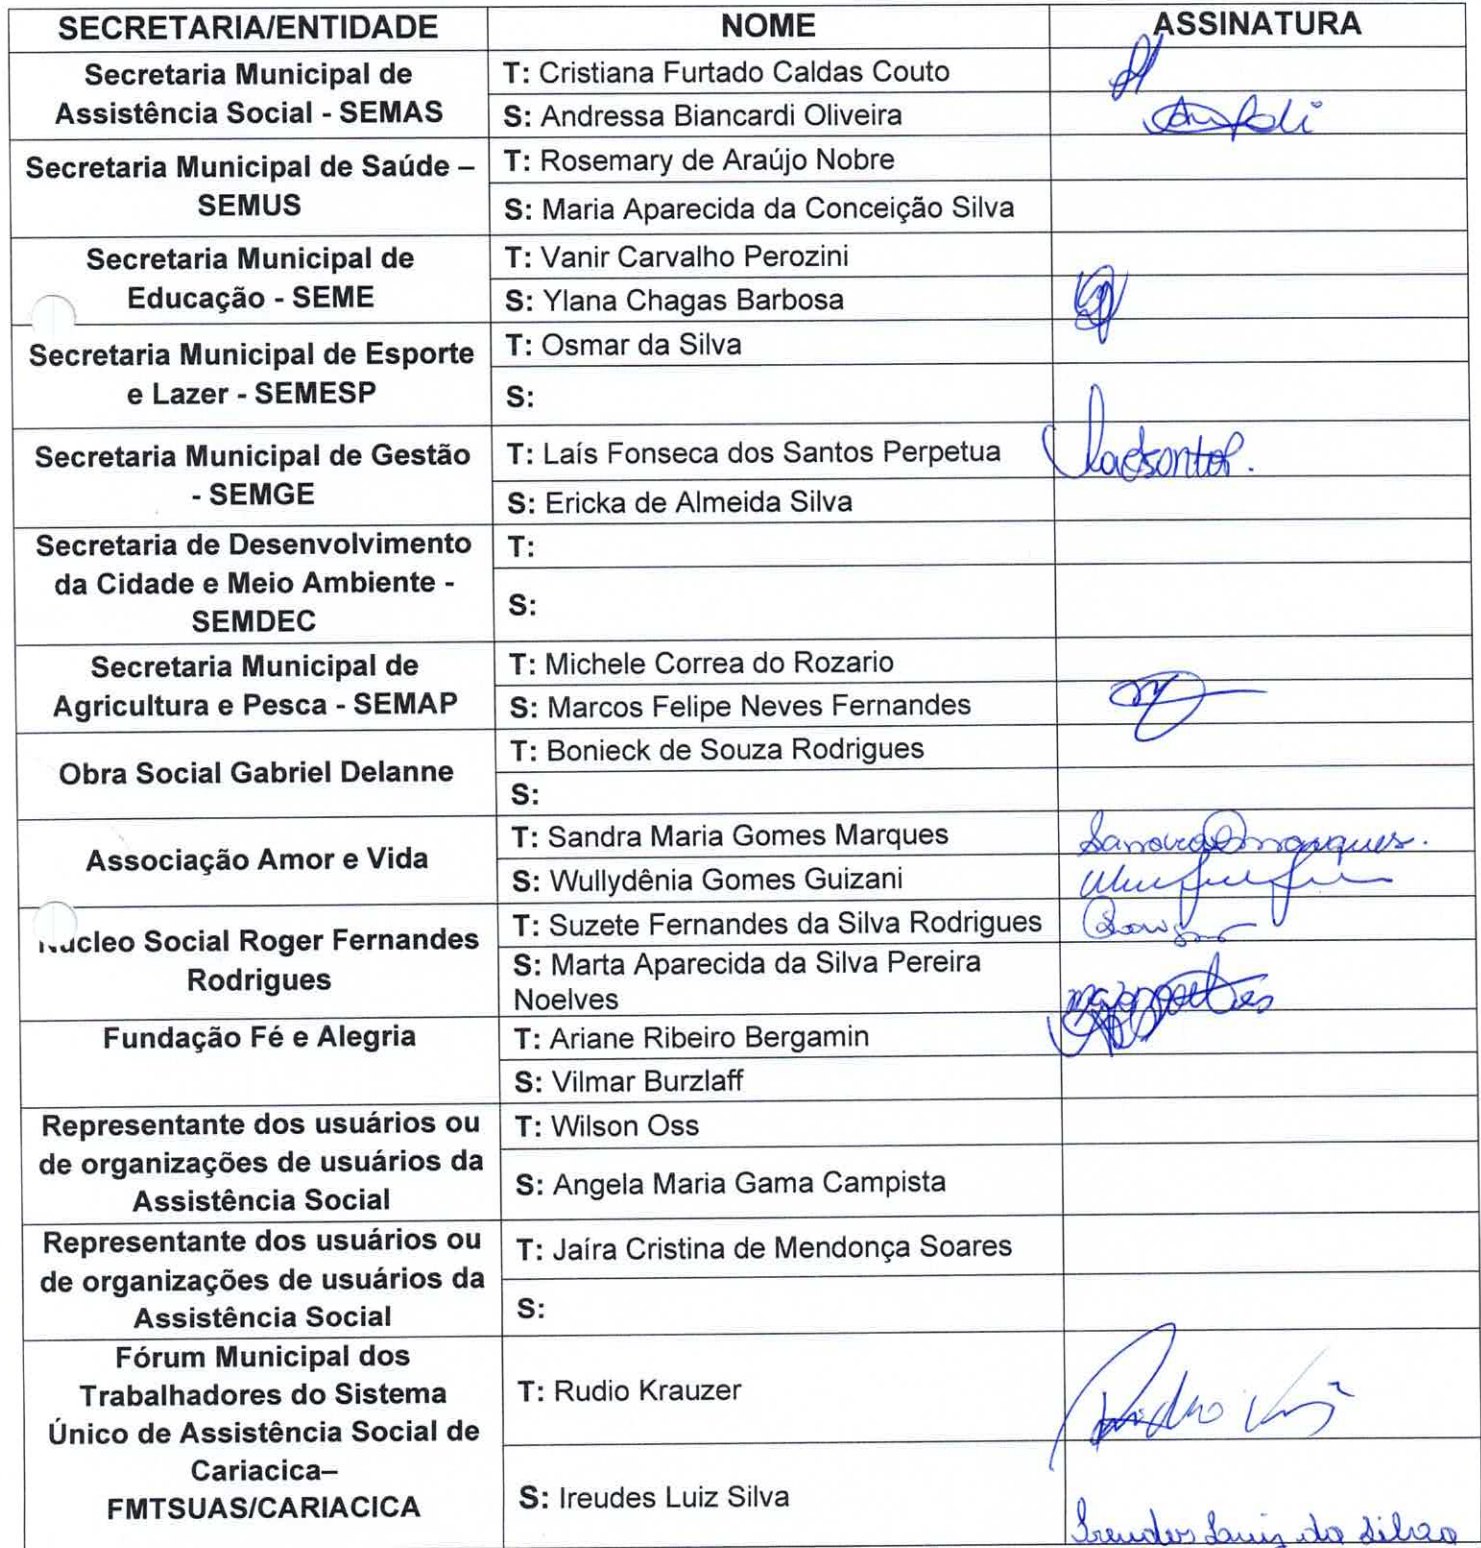 SECRETARIA/ENTIDADE NOME ASSINATURA
Secretaria Municipal de
Assistência Social - SEMAS
T: Cristiana Furtado Caldas Couto
S: Andressa Biancardi Oliveira
Secretaria Municipal de Saúde –
SEMUS
T: Rosemary de Araújo Nobre
S: Maria Aparecida da Conceição Silva
Secretaria Municipal de
Educação - SEME
T: Vanir Carvalho Perozini
S: Ylana Chagas Barbosa
Secretaria Municipal de Esporte
e Lazer - SEMESP
T: Osmar da Silva
S:
Secretaria Municipal de Gestão
- SEMGE
T: Laís Fonseca dos Santos Perpetua
S: Ericka de Almeida Silva
Secretaria de Desenvolvimento
da Cidade e Meio Ambiente -
SEMDEC
T:
S:
Secretaria Municipal de
Agricultura e Pesca - SEMAP
T: Michele Correa do Rozario
S: Marcos Felipe Neves Fernandes
Obra Social Gabriel Delanne
T: Bonieck de Souza Rodrigues
S:
Associação Amor e Vida
T: Sandra Maria Gomes Marques
Sandra Marques.
S: Wullydênia Gomes Guizani
Núcleo Social Roger Fernandes
Rodrigues
T: Suzete Fernandes da Silva Rodrigues
S: Marta Aparecida da Silva Pereira
Noelves
Fundação Fé e Alegria
T: Ariane Ribeiro Bergamin
S: Vilmar Burzlaff
Representante dos usuários ou
de organizações de usuários da
Assistência Social
T: Wilson Oss
S: Angela Maria Gama Campista
Representante dos usuários ou
de organizações de usuários da
Assistência Social
T: Jaíra Cristina de Mendonça Soares
S:
Fórum Municipal dos
Trabalhadores do Sistema
Único de Assistência Social de
Cariacica–
FMTSUAS/CARIACICA
T: Rudio Krauzer
Rudio
S: Ireudes Luiz Silva
Ireudes Luiz da Silva